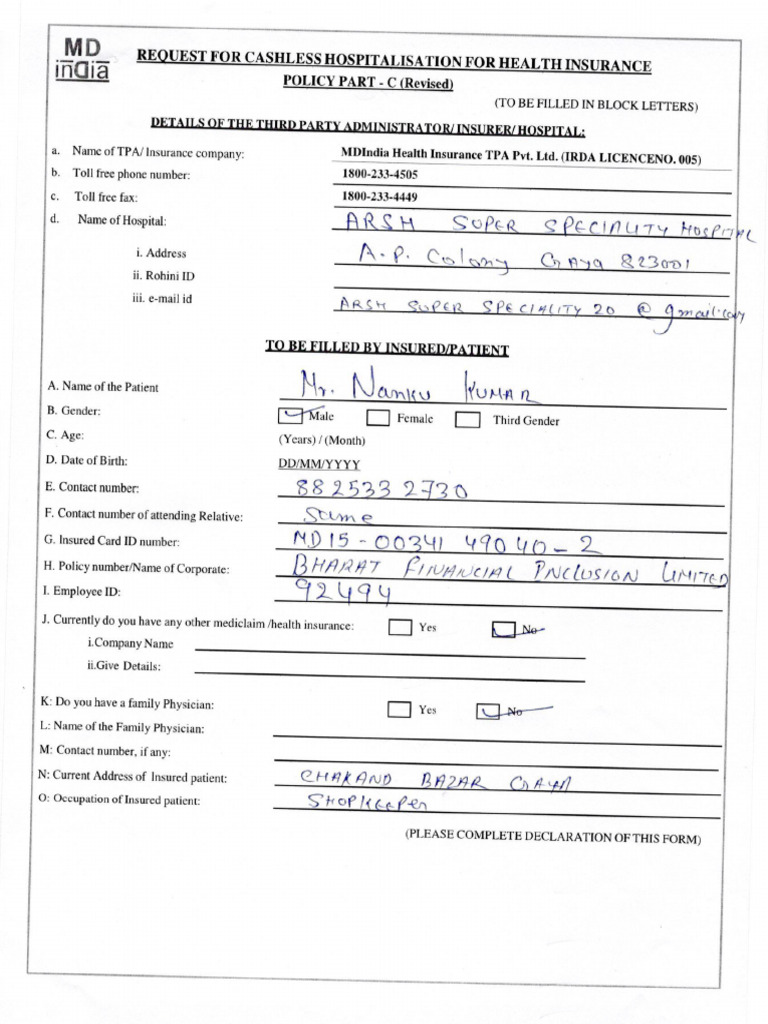 MD
inDia
REQUEST FOR CASHLESS HOSPITALISATION FOR HEALTH INSURANCE
POLICY PART - C (Revised)
(TO BE FILLED IN BLOCK LETTERS)
DETAILS OF THE THIRD PARTY ADMINISTRATOR/ INSURER/ HOSPITAL:
a. Name of TPA/ Insurance company: MDIndia Health Insurance TPA Pvt. Ltd. (IRDA LICENCENO. 005)
b. Toll free phone number: 1800-233-4505
c. Toll free fax: 1800-233-4449
d. Name of Hospital: ARSH SUPER SPECIALITY HOSPITAL
i. Address A.P. Colony Gaya 823001
ii. Rohini ID
iii. e-mail id ARSH SUPER SPECIALITY 20 @ gmail.com
TO BE FILLED BY INSURED/PATIENT
A. Name of the Patient Mr. Nanku KUMAR
B. Gender: Male Female Third Gender
C. Age: (Years) / (Month)
D. Date of Birth: DD/MM/YYYY
E. Contact number: 8825332730
F. Contact number of attending Relative: Same
G. Insured Card ID number: MD15-00341 49040-2
H. Policy number/Name of Corporate: BHARAT FINANCIAL INCLUSION LIMITED
I. Employee ID: 92494
J. Currently do you have any other mediclaim /health insurance: Yes No
i.Company Name
ii.Give Details:
K: Do you have a family Physician: Yes No
L: Name of the Family Physician:
M: Contact number, if any:
N: Current Address of Insured patient: CHAKAND BAZAR GAYA
O: Occupation of Insured patient: SHOPKEEPER
(PLEASE COMPLETE DECLARATION OF THIS FORM)